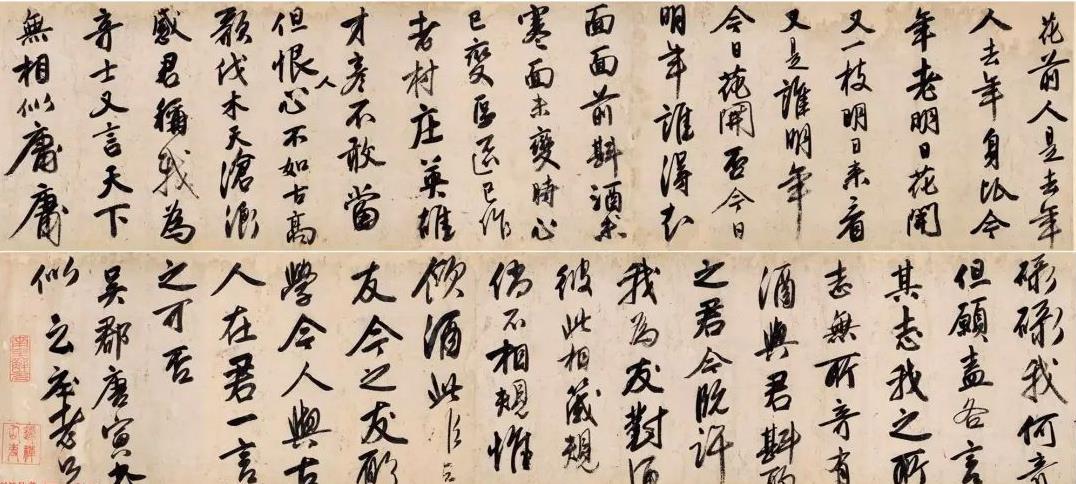 花前人是去年
人去年身比今
年老明日花開
又一枝明日来看
又是誰明年
今日花開否今日
明年誰得知
面面前斟酒未
寒面未變時心
已變區區已作
老村庄英雄
才彥不敢當
但恨人心不如古高
歌伐木天滄浪
感君稱我為
奇士又言天下
無相似庸庸
碌碌我何奇
但願盍各言
其志我之所
志無所奇有
酒與君斟酌
之君今既許
我為友對酒
彼此相箴規
倘不相規惟
飲酒此
友今之友願
學今人與古
人在君一言
之可否
吳郡唐寅
似